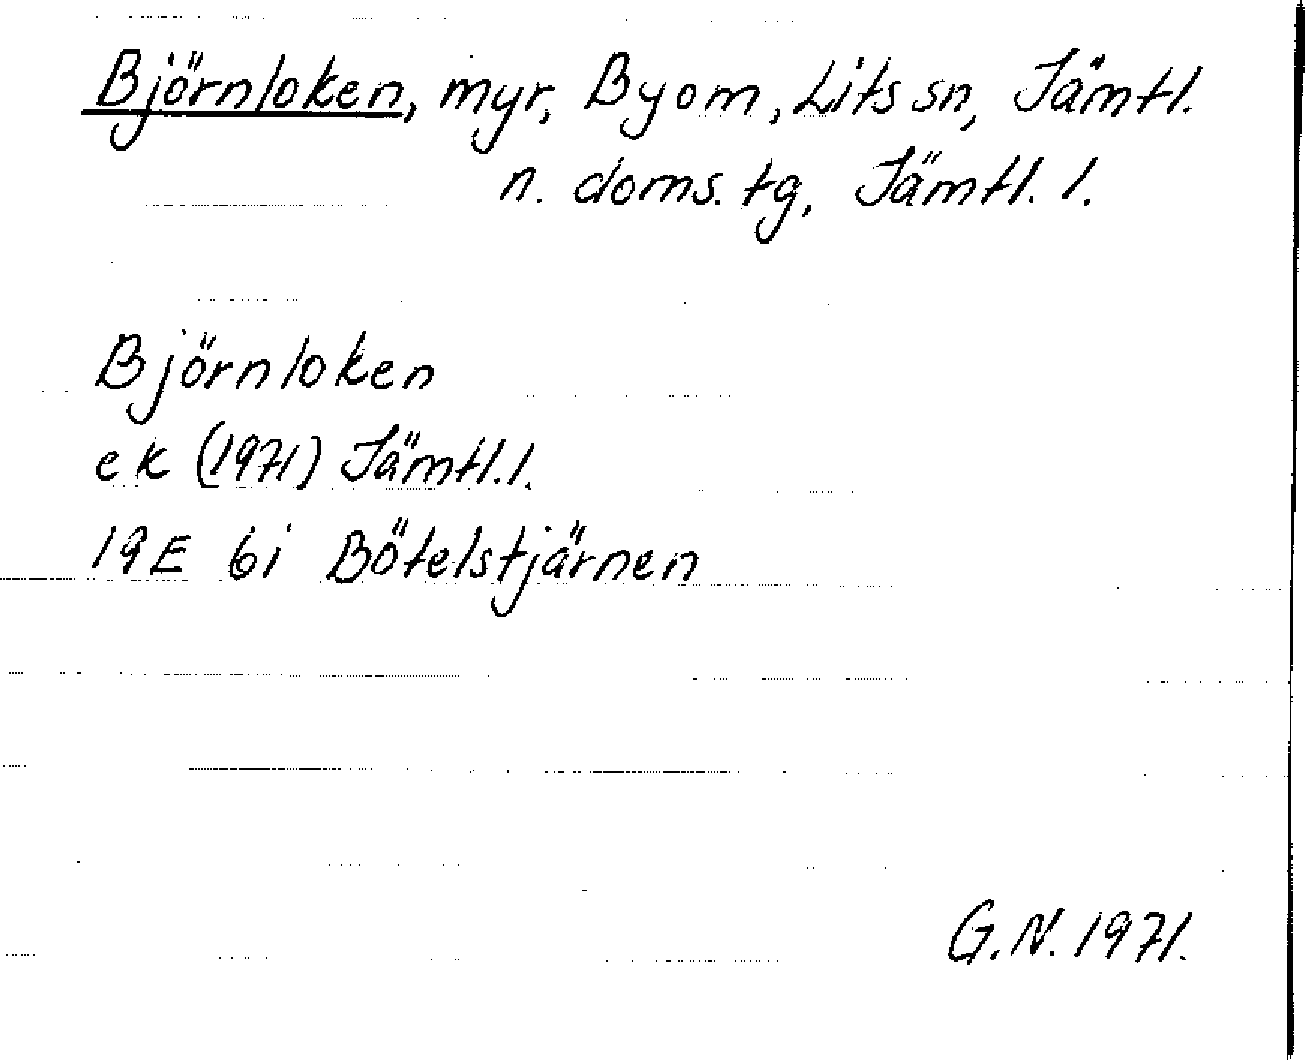 Björnloken, myr, Byom, Lits sn, Jämtl.
n. doms. tg, Jämtl. l.
Björnloken
ek (1971) Jämtl. l.
19E 6i Bötelstjärnen
G.N. 1971.